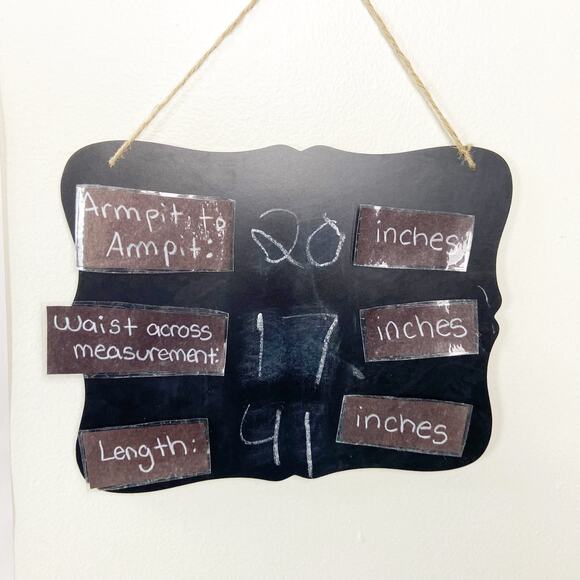 Armpit to
Armpit: 20 inches
Waist across
measurement: 17 inches
Length: 41 inches